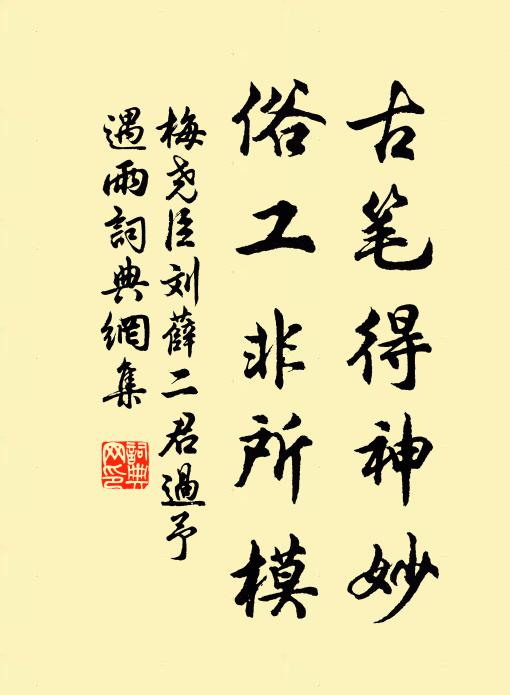 古笔得神妙
俗工非所模
梅尧臣刘薛二君過予
遇雨詞典網集
詞典网印